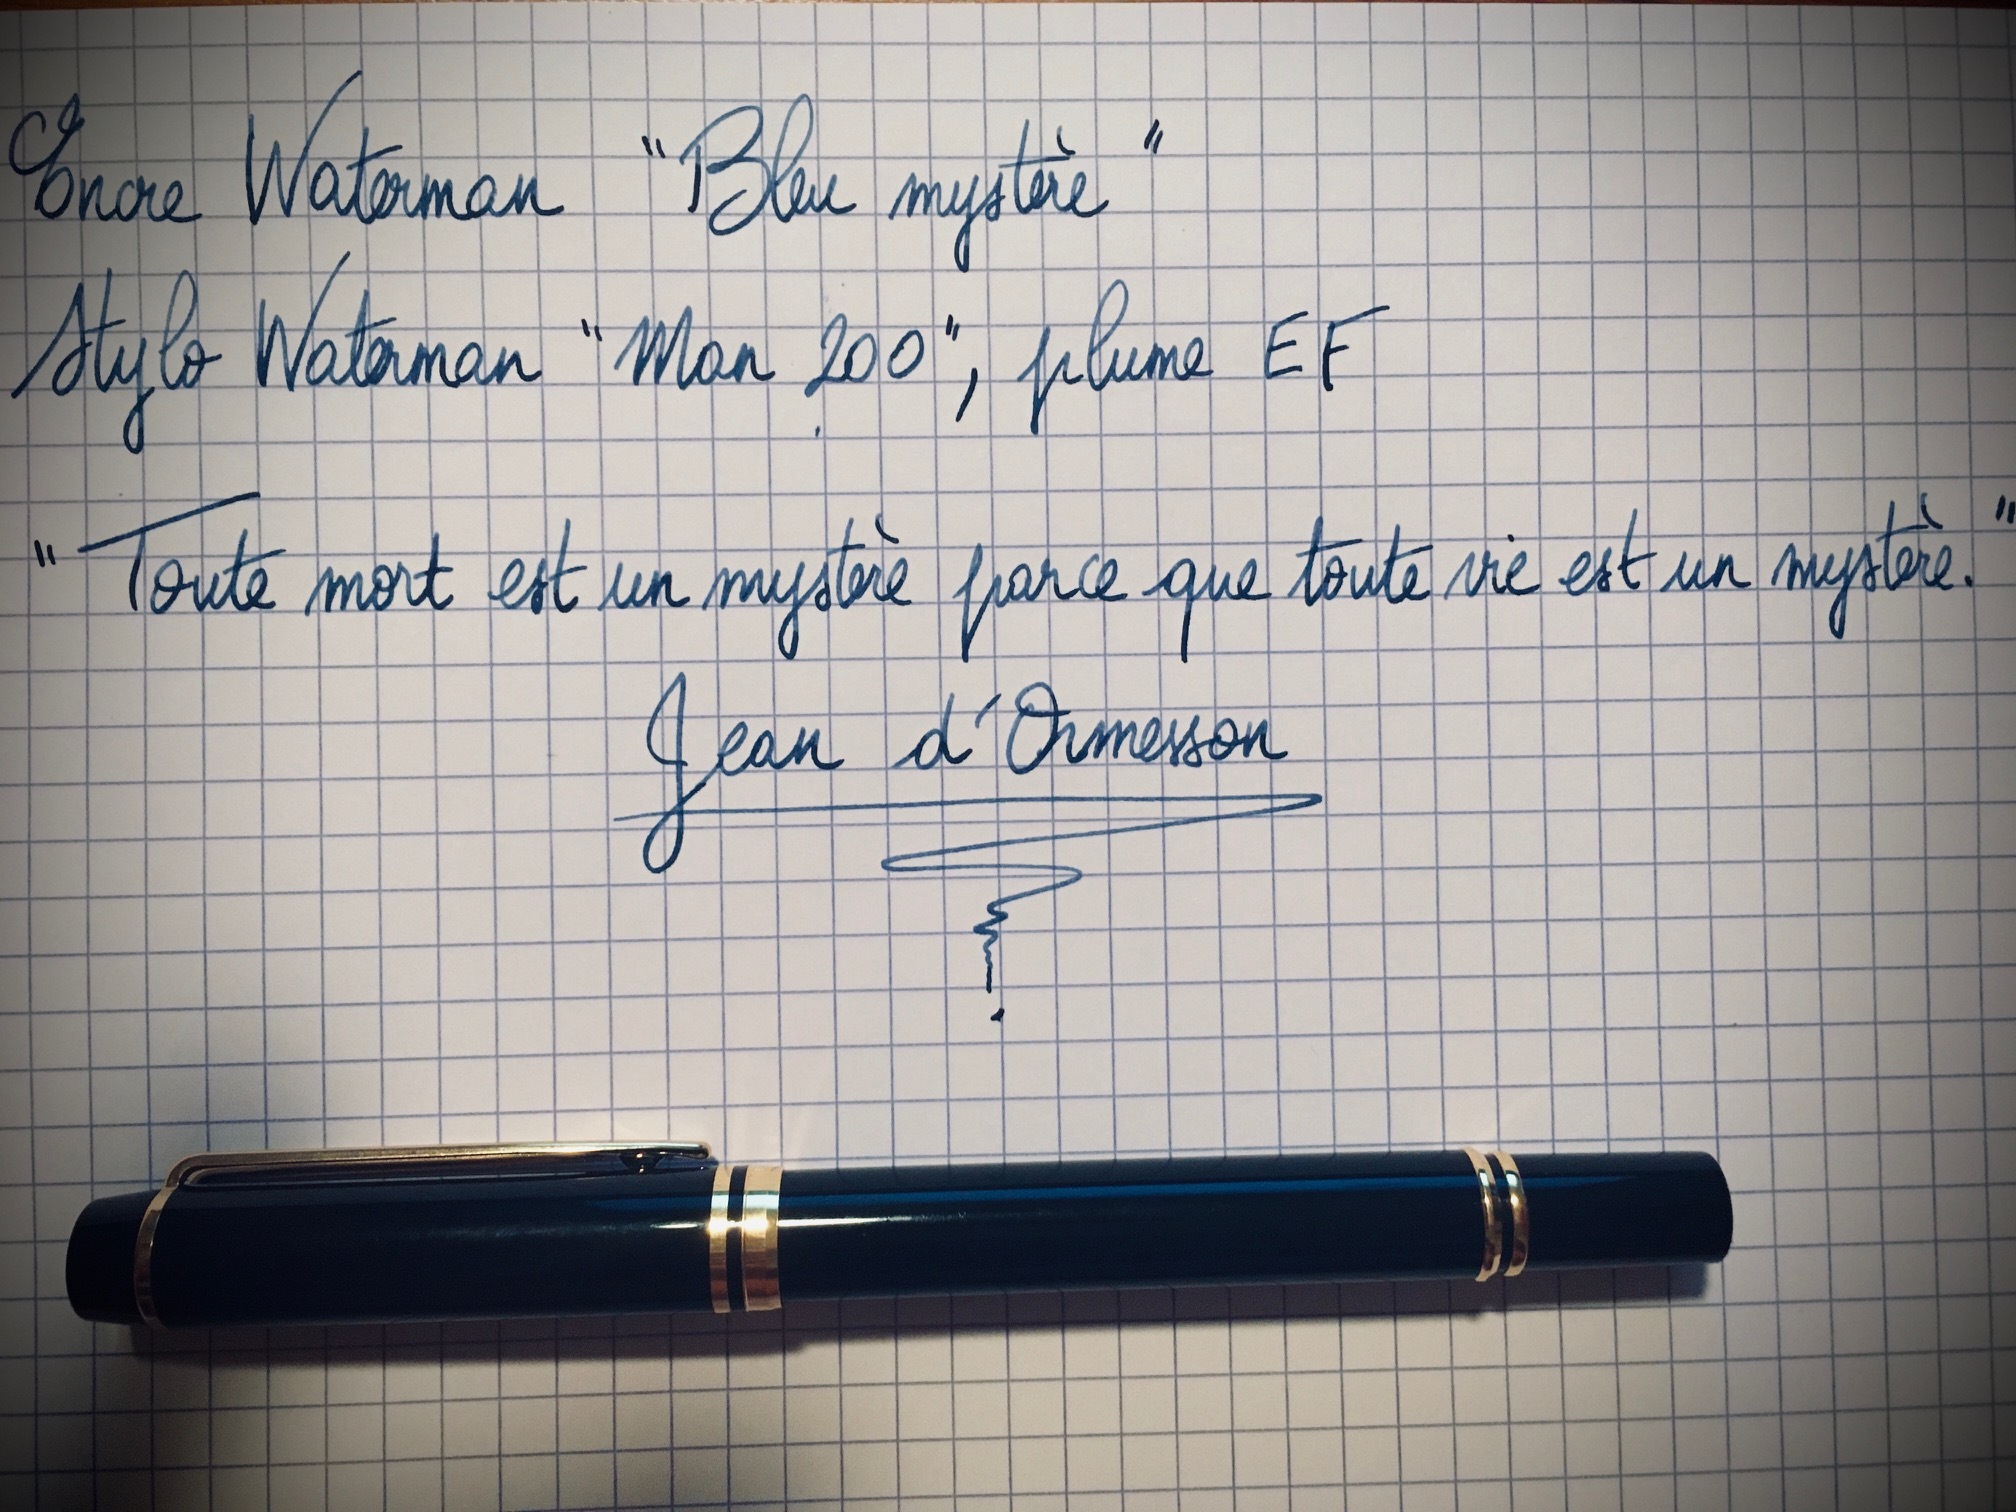 Encre Waterman "Bleu mystère"
Stylo Waterman "Man 200", plume EF
"Toute mort est un mystère parce que toute vie est un mystère."
Jean d'Ormesson